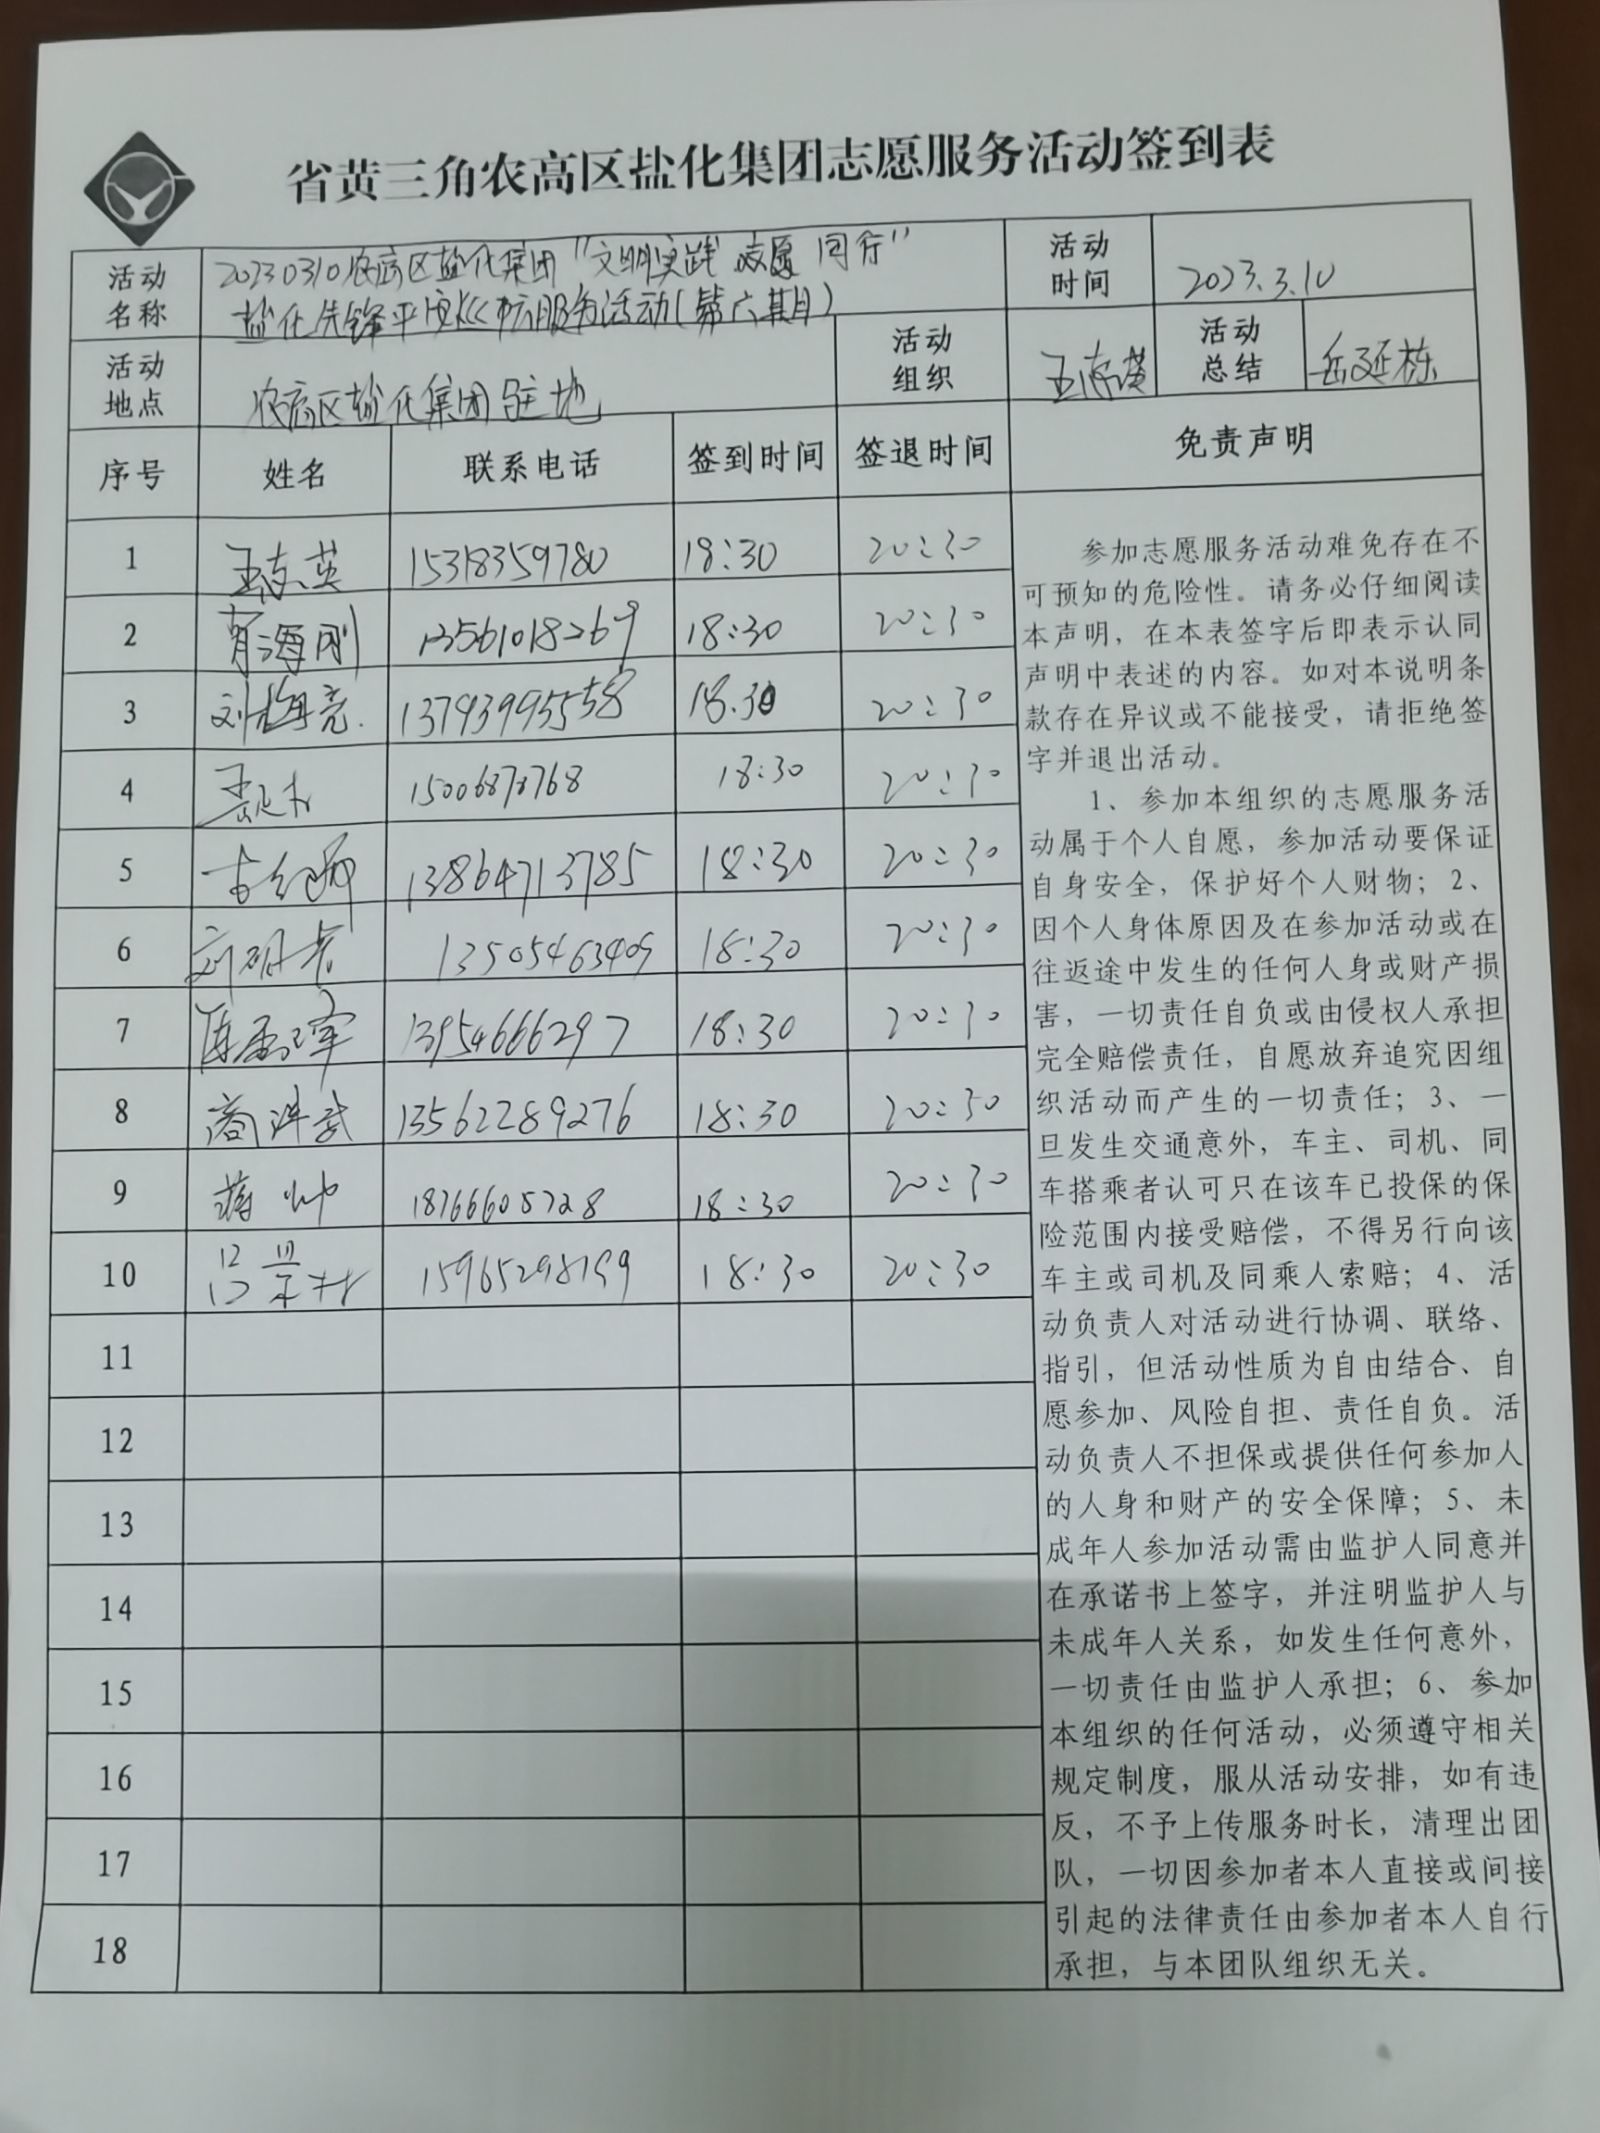 省黄三角农高区盐化集团志愿服务活动签到表
活动名称
20230310农高区盐化集团"文明实践 志愿同行"
盐化先锋平安 服务活动(第六期)
活动时间
2023.3.10
活动地点
农高区盐化集团驻地
活动组织
王志英
活动总结
岳延栋
序号 姓名 联系电话 签到时间 签退时间 免责声明
1 王志英 15318359780 18:30 20:30
2 海刚 13561018269 18:30 20:30
3 刘梅亮 13793995558 18:30 20:30
4 18:30 20:30
5 13864713785 18:30 20:30
6 刘明 13505463409 18:30 20:30
7 13954666297 18:30 20:30
8 商洪武 13562289276 18:30 20:30
9 蒋帅 18766605728 18:30 20:30
10 吕景村 15965298199 18:30 20:30
11
12
13
14
15
16
17
18
参加志愿服务活动难免存在不
可预知的危险性。请务必仔细阅读
本声明，在本表签字后即表示认同
声明中表述的内容。如对本说明条
款存在异议或不能接受，请拒绝签
字并退出活动。
1、参加本组织的志愿服务活
动属于个人自愿，参加活动要保证
自身安全，保护好个人财物；2、
因个人身体原因及在参加活动或在
往返途中发生的任何人身或财产损
害，一切责任自负或由侵权人承担
完全赔偿责任，自愿放弃追究因组
织活动而产生的一切责任；3、一
旦发生交通意外，车主、司机、同
车搭乘者认可只在该车已投保的保
险范围内接受赔偿，不得另行向该
车主或司机及同乘人索赔；4、活
动负责人对活动进行协调、联络、
指引，但活动性质为自由结合、自
愿参加、风险自担、责任自负。活
动负责人不担保或提供任何参加人
的人身和财产的安全保障；5、未
成年人参加活动需由监护人同意并
在承诺书上签字，并注明监护人与
未成年人关系，如发生任何意外，
一切责任由监护人承担；6、参加
本组织的任何活动，必须遵守相关
规定制度，服从活动安排，如有违
反，不予上传服务时长，清理出团
队，一切因参加者本人直接或间接
引起的法律责任由参加者本人自行
承担，与本团队组织无关。